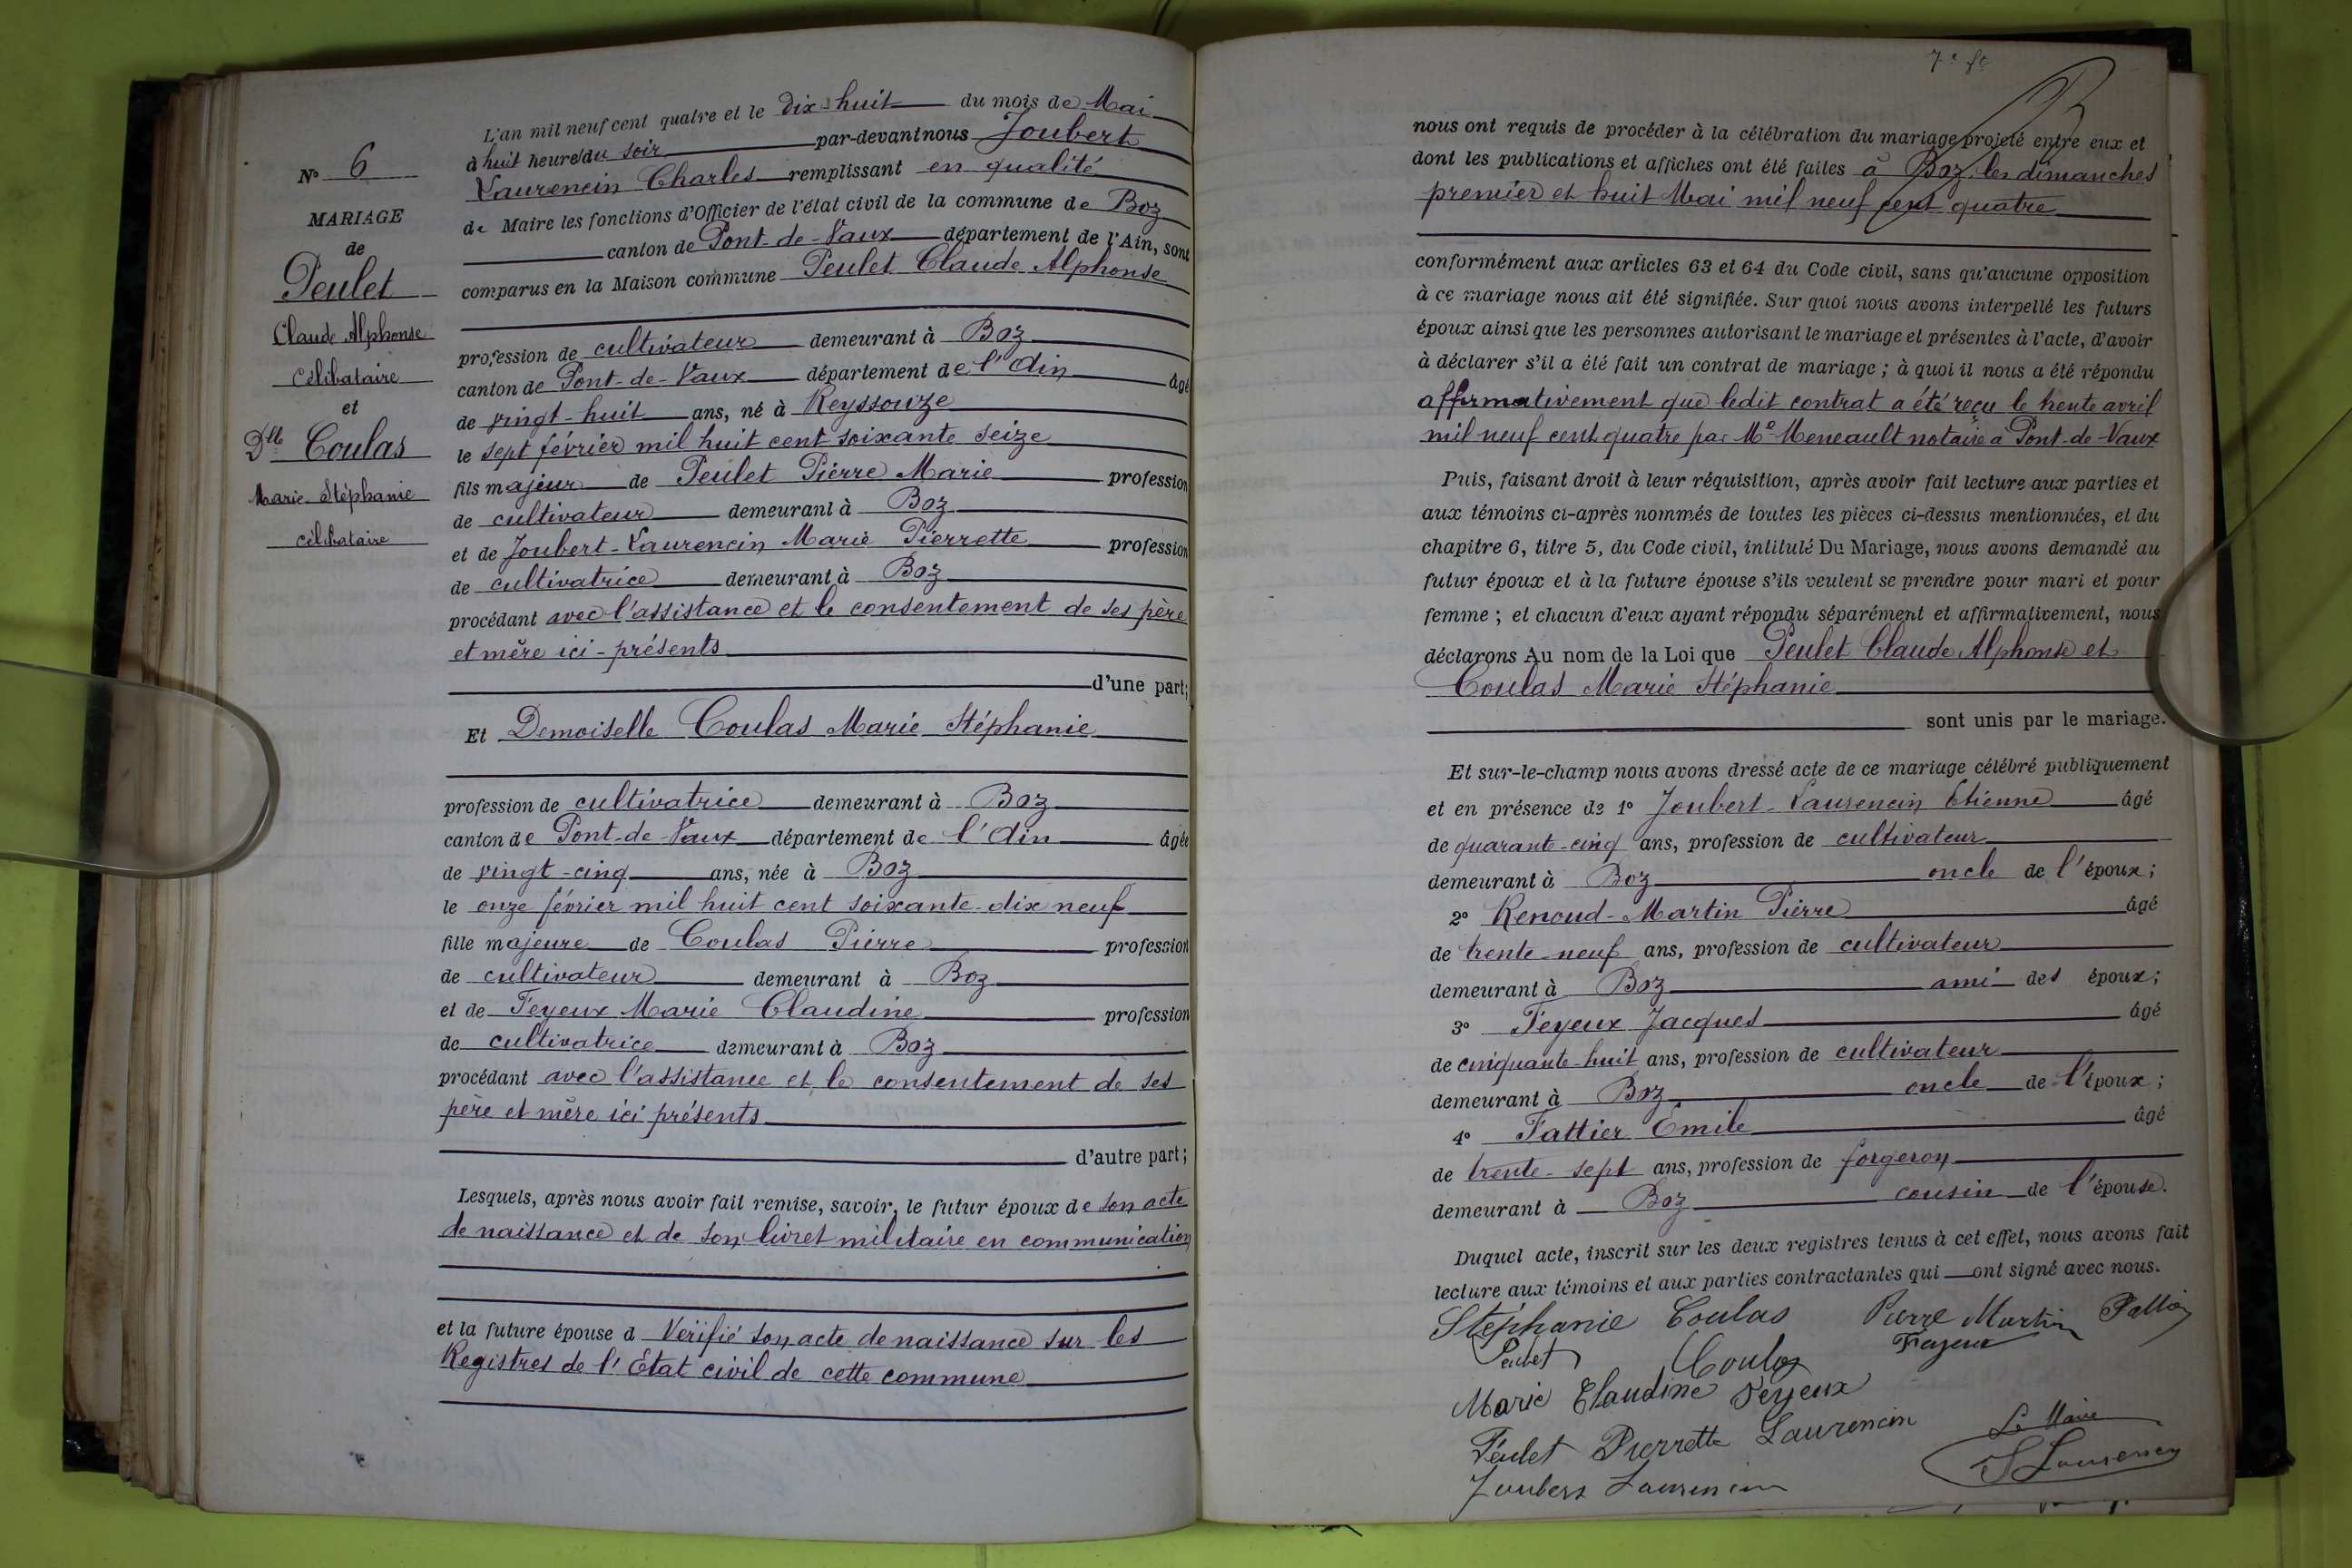 N° 6
MARIAGE
de
Peulet
Claude Alphonse
célibataire
et
Dlle Coulas
Marie Stéphanie
célibataire
L'an mil neuf cent quatre et le dix-huit du mois de Mai
à huit heures du soir par-devant nous Joubert
Laurencin Charles remplissant en qualité
de Maire les fonctions d'Officier de l'état civil de la commune de Boz
canton de Pont-de-Vaux département de l'Ain, sont
comparus en la Maison commune Peulet Claude Alphonse
profession de cultivateur demeurant à Boz
canton de Pont-de-Vaux département de l'Ain âgé
de vingt-huit ans, né à Reyssouze
le sept février mil huit cent soixante seize
fils majeur de Peulet Pierre Marie profession
de cultivateur demeurant à Boz
et de Joubert-Laurencin Marie Pierrette profession
de cultivatrice demeurant à Boz
procédant avec l'assistance et le consentement de ses père
et mère ici-présents
d'une part;
Et Demoiselle Coulas Marie Stéphanie
profession de cultivatrice demeurant à Boz
canton de Pont-de-Vaux département de l'Ain âgée
de vingt-cinq ans, née à Boz
le onze février mil huit cent soixante-dix neuf
fille majeure de Coulas Pierre profession
de cultivateur demeurant à Boz
et de Feyeux Marie Claudine profession
de cultivatrice demeurant à Boz
procédant avec l'assistance et le consentement de ses
père et mère ici présents
d'autre part;
Lesquels, après nous avoir fait remise, savoir, le futur époux de son acte
de naissance et de son livret militaire en communication
et la future épouse a Vérifié son acte de naissance sur les
Registres de l'Etat civil de cette commune
7e ft
nous ont requis de procéder à la célébration du mariage projeté entre eux et
dont les publications et affiches ont été faites à Boz les dimanches
premier et huit Mai mil neuf cent quatre
conformément aux articles 63 et 64 du Code civil, sans qu'aucune opposition
à ce mariage nous ait été signifiée. Sur quoi nous avons interpellé les futurs
époux ainsi que les personnes autorisant le mariage et présentes à l'acte, d'avoir
à déclarer s'il a été fait un contrat de mariage; à quoi il nous a été répondu
affirmativement que ledit contrat a été reçu le trente avril
mil neuf cent quatre par Me Meneault notaire à Pont-de-Vaux
Puis, faisant droit à leur réquisition, après avoir fait lecture aux parties et
aux témoins ci-après nommés de toutes les pièces ci-dessus mentionnées, et du
chapitre 6, titre 5, du Code civil, intitulé Du Mariage, nous avons demandé au
futur époux et à la future épouse s'ils veulent se prendre pour mari et pour
femme; et chacun d'eux ayant répondu séparément et affirmativement, nous
déclarons Au nom de la Loi que Peulet Claude Alphonse et
Coulas Marie Stéphanie
sont unis par le mariage.
Et sur-le-champ nous avons dressé acte de ce mariage célébré publiquement
et en présence de 1° Joubert-Laurencin Etienne âgé
de quarante-cinq ans, profession de cultivateur
demeurant à Boz oncle de l'époux;
2° Renoud-Martin Pierre âgé
de trente-neuf ans, profession de cultivateur
demeurant à Boz ami des époux;
3° Feyeux Jacques âgé
de cinquante-huit ans, profession de cultivateur
demeurant à Boz oncle de l'époux;
4° Fattier Emile âgé
de trente-sept ans, profession de forgeron
demeurant à Boz cousin de l'épouse.
Duquel acte, inscrit sur les deux registres tenus à cet effet, nous avons fait
lecture aux témoins et aux parties contractantes qui ont signé avec nous.
Stéphanie Coulas Pierre Martin Fattier
Peulet Coulas Feyeux
Marie Claudine Feyeux
Peulet Pierrette Laurencin
Le Maire
Joubert Laurencin
J Laurencin